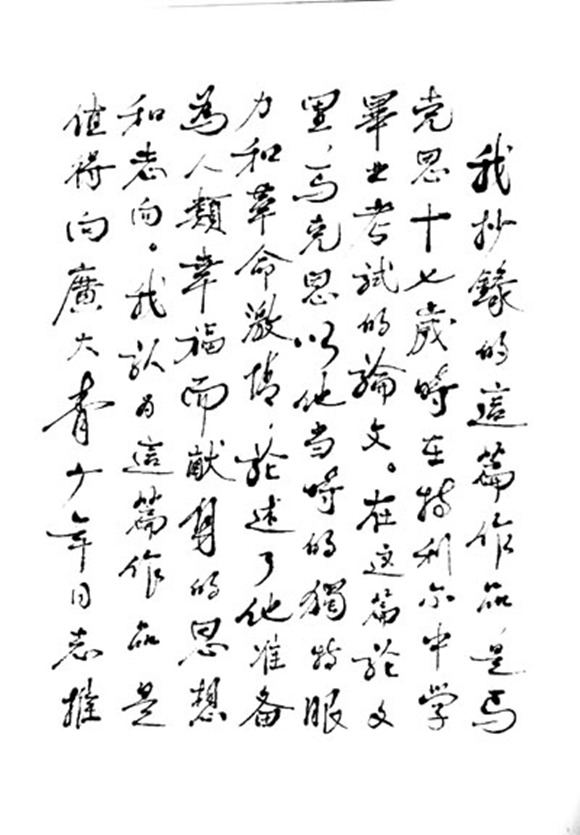 我抄錄的這篇作品,是马
克思十七歲時在特利尔中学
畢业考試的論文。在这篇论文
里,马克思以他当時的獨特眼
力和革命激情,论述了他准备
為人類幸福而献身的思想
和志向。我认为這篇作品是
值得向廣大青少年同志推